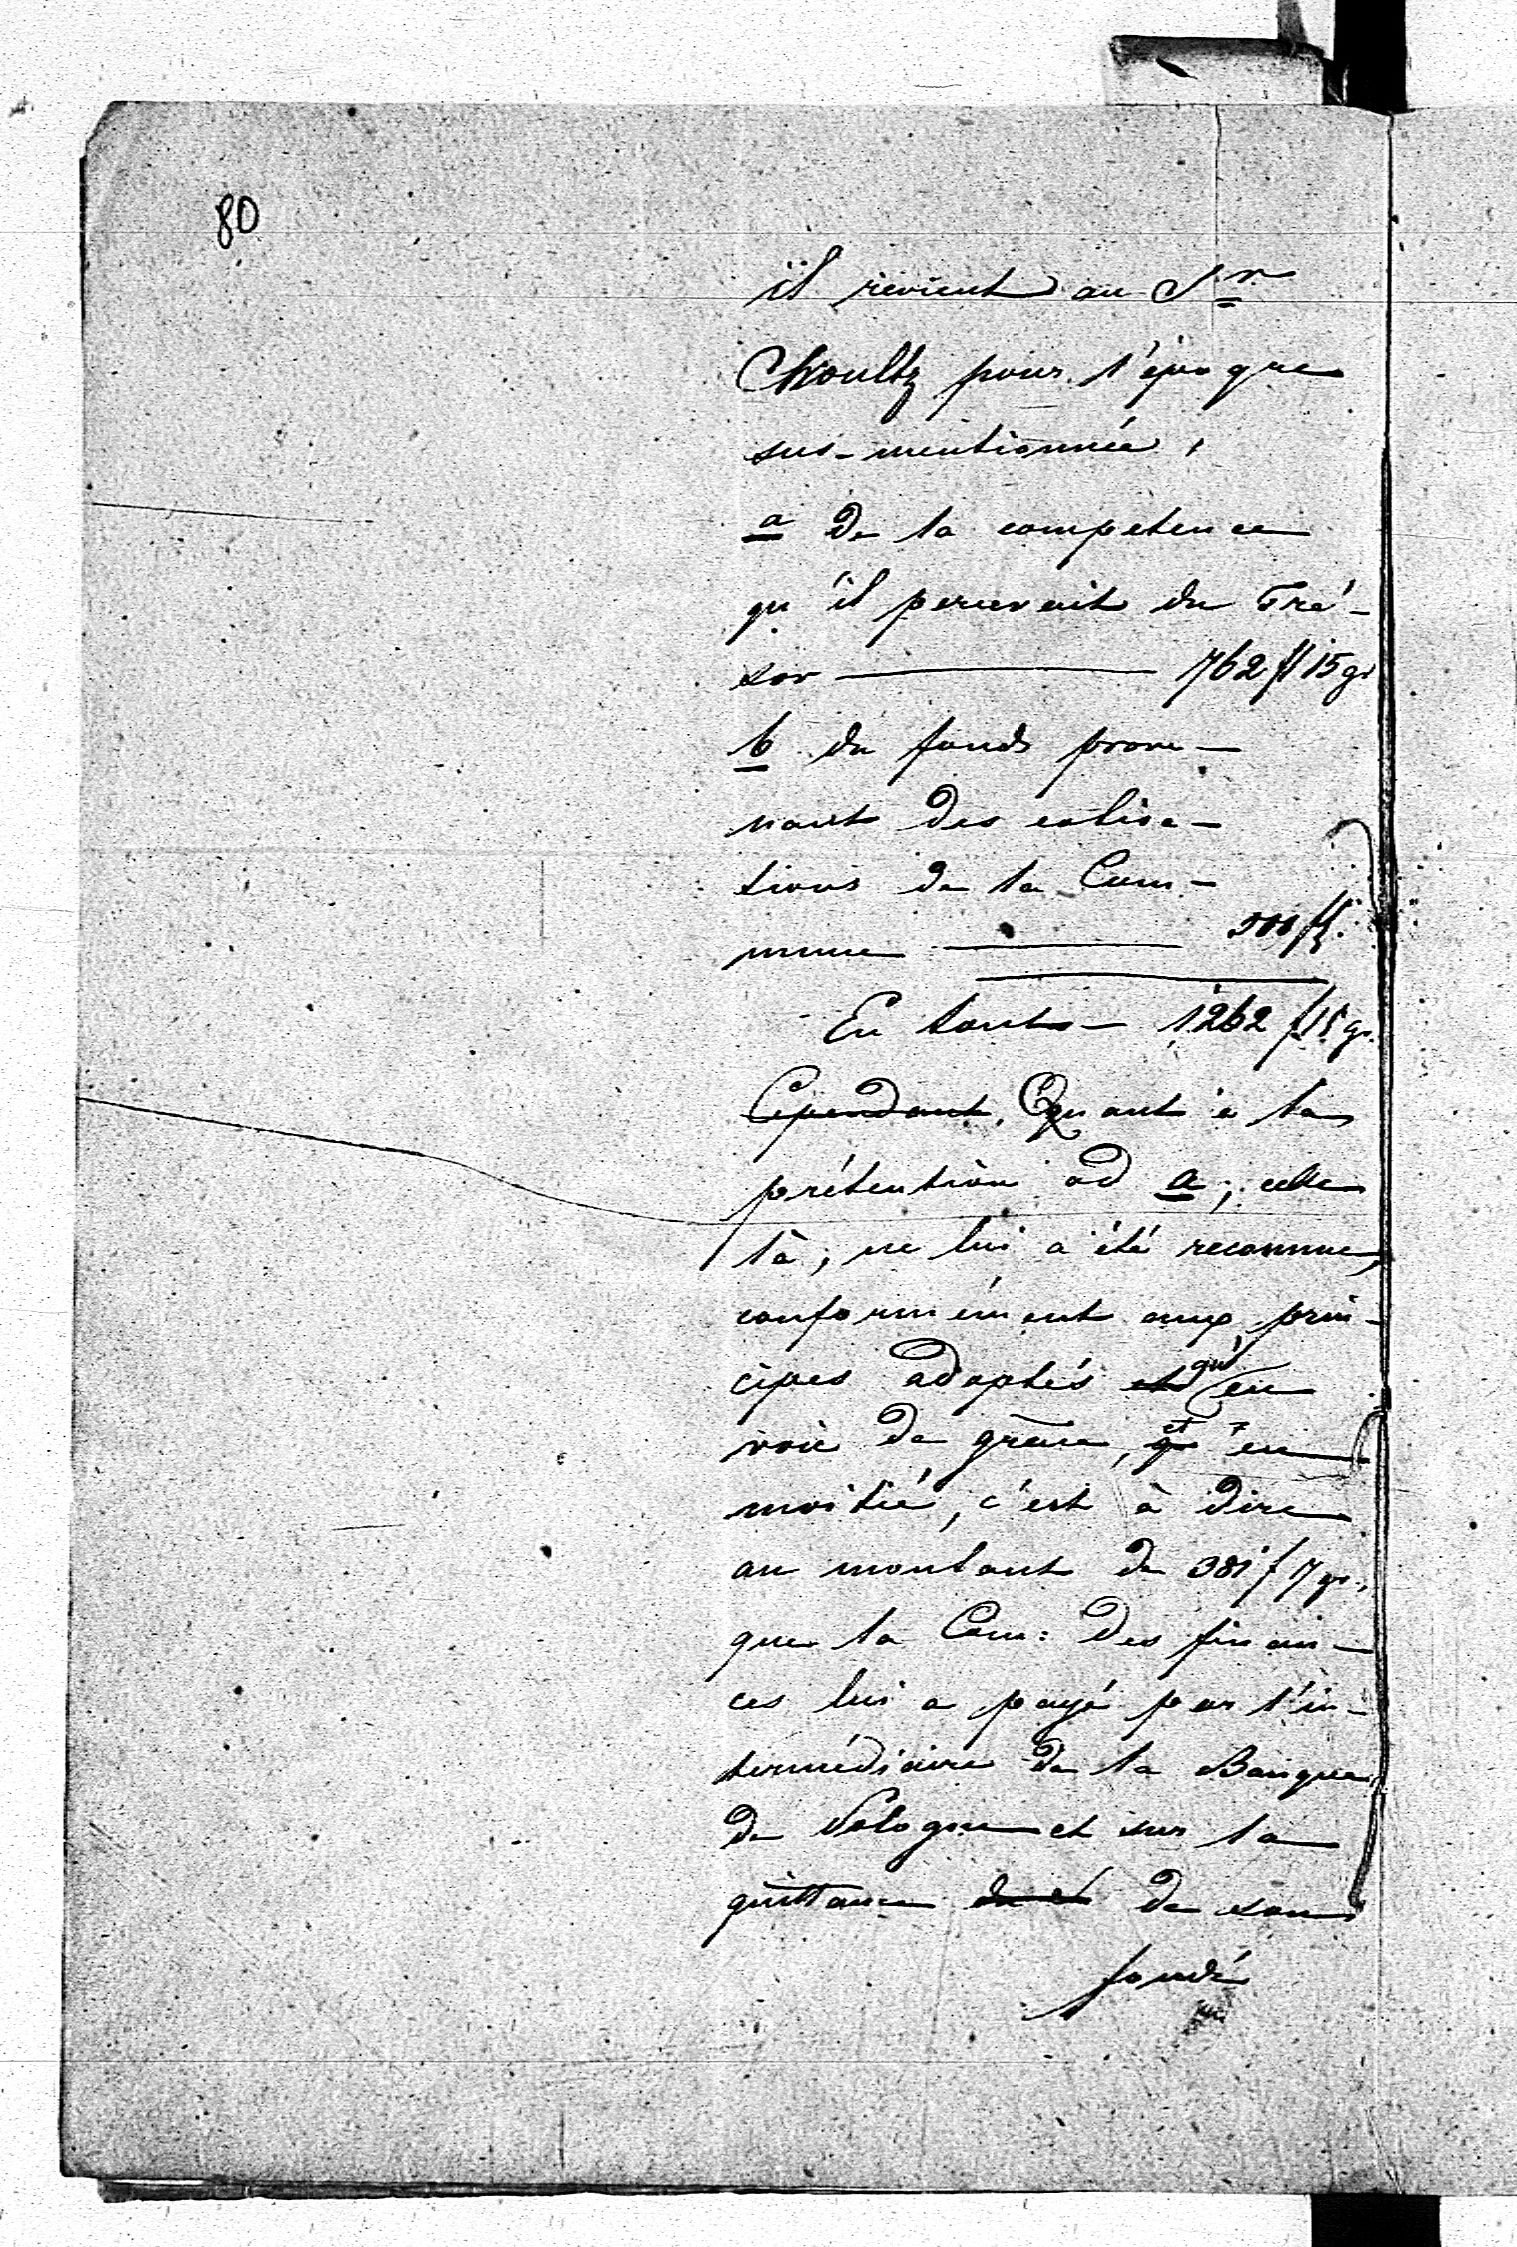 80
il revient au Sr.
Choultz pour l'époque
sus-mentionnée,
a De la compétence
qu'il percevait du Tré-
sor — 762 fl 15 gr
b du fonds prove-
nant des cotisa-
tions de la Com-
mune — 500 fl.
En tout — 1262 f 15 gr.
Cependant. Quant à la
prétention ad a; celle
là, ne lui a été reconnue,
conformément aux prin-
cipes adoptés et qu'en
voie de grâce, et qu'en
moitié, c'est à dire
au montant de 381 f 7 gr.,
que la Com: des finan-
ces lui a payé par l'in-
termédiaire de la Banque
de Pologne et sur la
quittance de son
fondé